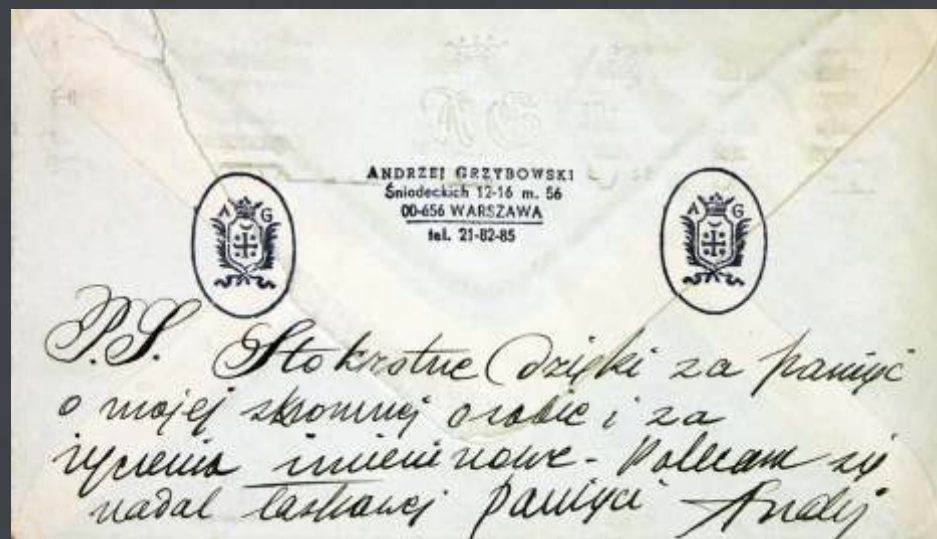 ANDRZEJ GRZYBOWSKI
Śniadeckich 12-16 m. 56
00-656 WARSZAWA
tel. 21-82-85
A G
A G
P.S. Stokrotne dzięki za pamięć
o mojej skromnej osobie i za
życzenia imieninowe - Polecam się
nadal łaskawej pamięci Andrzej